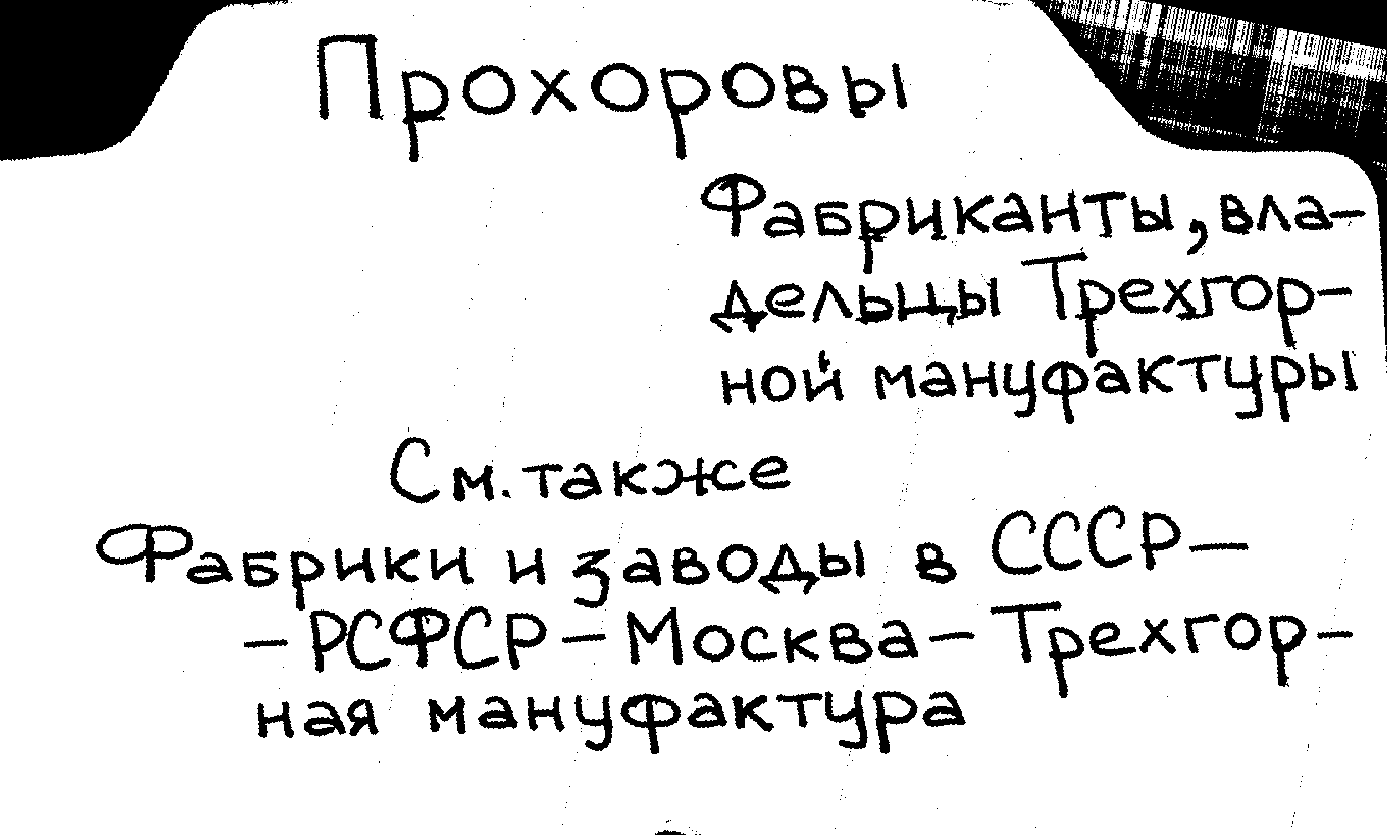 Прохоровы
Фабриканты, вла-
дельцы Трехгор-
ной мануфактуры
См. также
Фабрики и заводы в СССР —
— РСФСР — Москва — Трехгор-
ная мануфактура